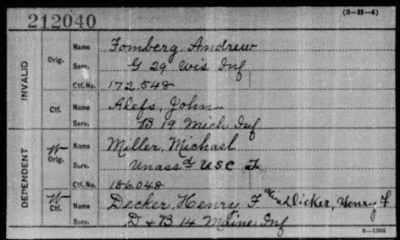 (3—H—4)
212040
INVALID
Orig.
Name Fomberg, Andrew
Serv. G 29 Wis Inf
Ctf. No. 172,548
Ctf.
Name Alefs, John
Serv. B 19 Mich Inf
DEPENDENT
W
Orig.
Name Miller, Michael
Serv. Unass'd USC T
Ctf. No. 186048
W
Ctf.
Name Decker, Henry F Dicker, Henry F
Serv. D & B 14 Maine Inf